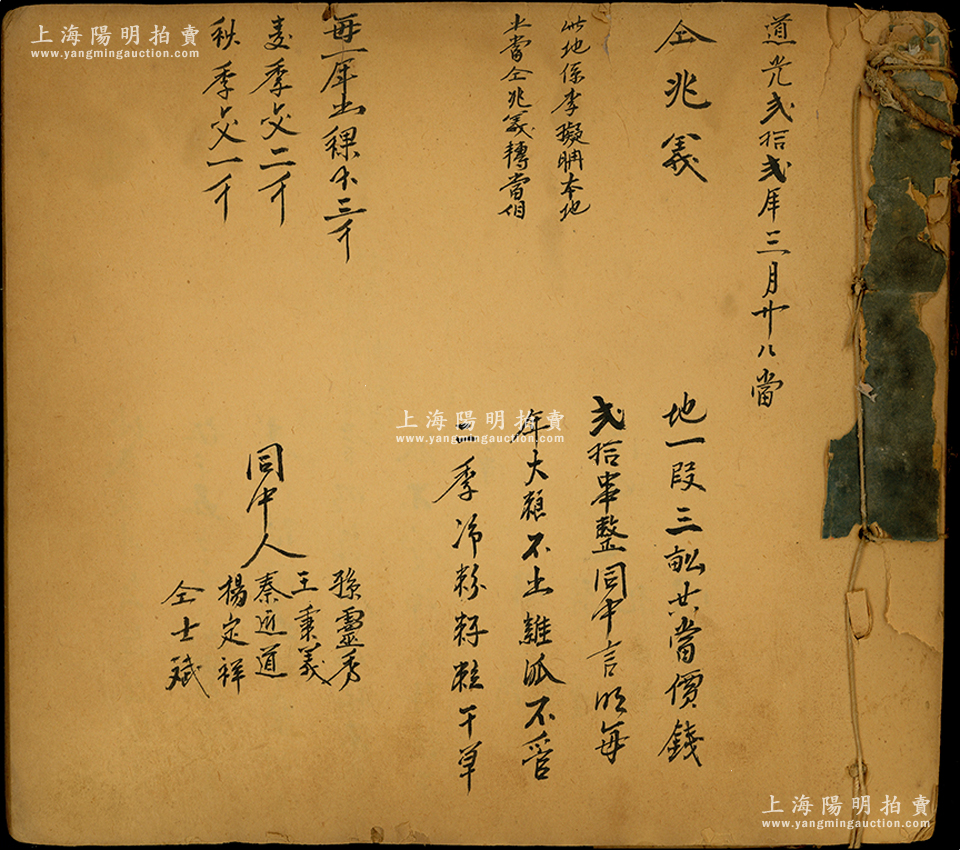 道光弍拾弍年三月廿八當
仝兆義
地一段三畝共當價錢
弍拾串整同中言明每
年大粮不出雜派不管
二季冷粉籽粒干草
此地係李擬明本地
當仝兆義轉當
每一年出稞三千
麦季交二千
秋季交一千
同中人
孫靈秀
王秉義
秦近道
楊定祥
仝士斌
上海陽明拍賣
www.yangmingauction.com
上海陽明拍賣
www.yangmingauction.com
上海陽明拍賣
www.yangmingauction.com